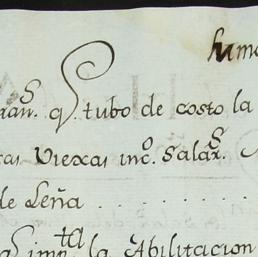 hum
ran.^s q.^e tubo de costo la
cas Viexas inc.^o Salar.^s
de Leña . . . . . . . . . .
imp.^ta la Abilitacion